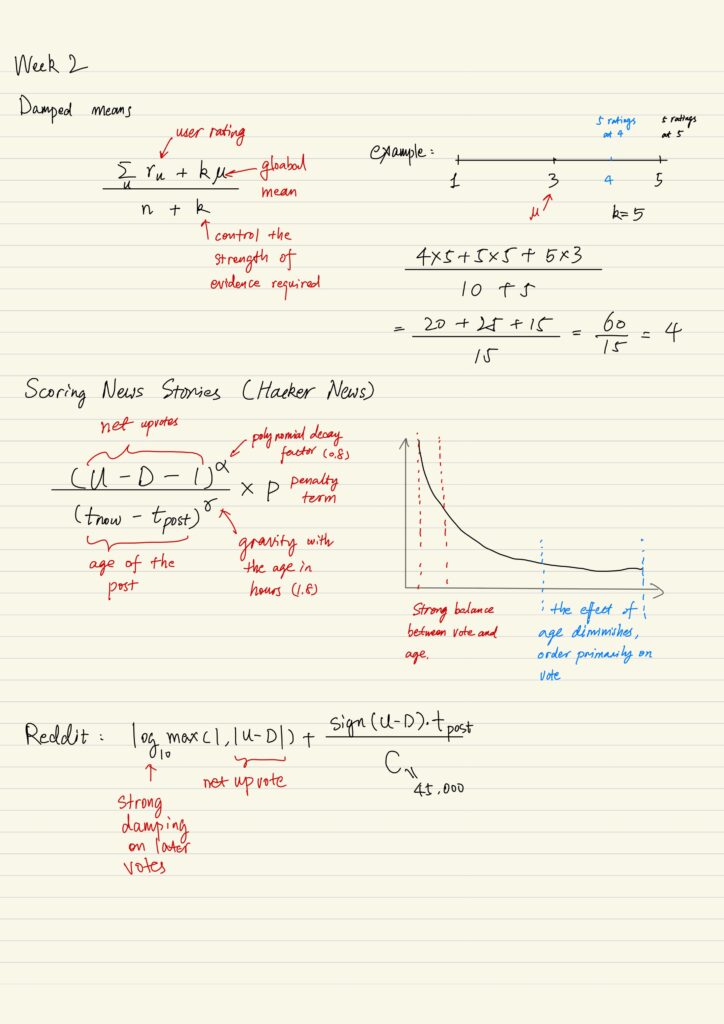 Week 2
Damped means
user rating
∑u ru + kμ
gloabal mean
n + k
control the
strength of
evidence required
example:
5 ratings at 4
5 ratings at 5
1 3 4 5
μ
k=5
4×5+5×5+5×3
10 +5
= 20 + 25 + 15 = 60 = 4
15 15
Scoring News Stories (Hacker News)
net upvotes
polynomial decay
factor (0.8)
(U - D - 1)^α
× P penalty term
(tnow - tpost)^γ
age of the
post
gravity with
the age in
hours (1.8)
Strong balance
between vote and
age.
the effect of
age diminishes,
order primarily on
vote
Reddit: log10 max(1, |U-D|) + sign(U-D)·tpost
C
45,000
net upvote
Strong
damping
on later
votes